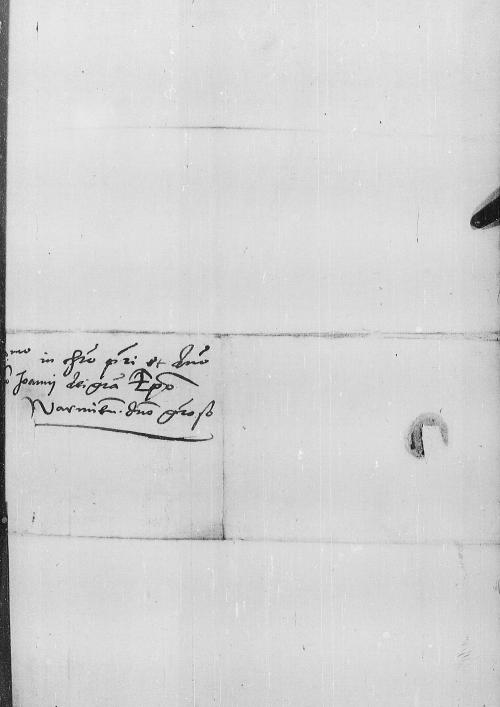 mo in chro pri et dno
Joanni dei gra Epo
Warmien. dno groso